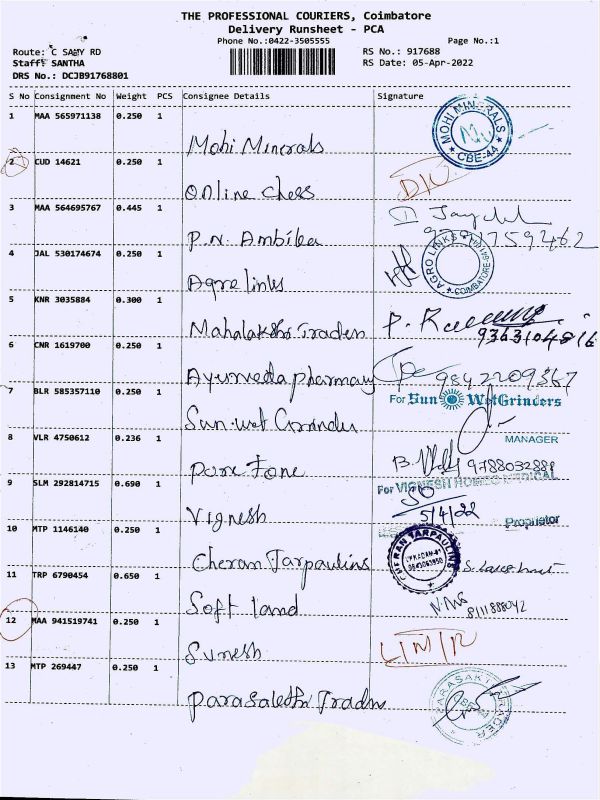 THE PROFESSIONAL COURIERS, Coimbatore
Delivery Runsheet - PCA
Phone No.:0422-3505555 Page No.:1
Route: C SAMY RD RS No.: 917688
Staff: SANTHA RS Date: 05-Apr-2022
DRS No.: DCJB91768801
S No Consignment No Weight PCS Consignee Details Signature
1 MAA 565971138 0.250 1 Mohi Minerals MOHI MINERALS CBE-44
2 CUD 14621 0.250 1 Online Chess
3 MAA 564695767 0.445 1 P.N. Ambika
4 JAL 530174674 0.250 1 Agrolinks AGRO LINKS
5 KNR 3035884 0.300 1 Mahalakshi Traders 9363104816
6 CNR 1619700 0.250 1 Ayurveda pharmacy 9842209367
7 BLR 585357110 0.250 1 Sun-wet Grinder For Sun WetGrinders
MANAGER
8 VLR 4750612 0.236 1 Pore Tone 9788032881
9 SLM 292814715 0.690 1 Vignesh For VIGNESH HOMEO MEDICAL
5/4/22
Proprietor
10 MTP 1146140 0.250 1 Cheran Tarpaulins CHERAN TARPAULINS
11 TRP 6790454 0.650 1 Soft land 8111888042
12 MAA 941519741 0.250 1 Suresh
13 MTP 269447 0.250 1 Parasakthi Traders